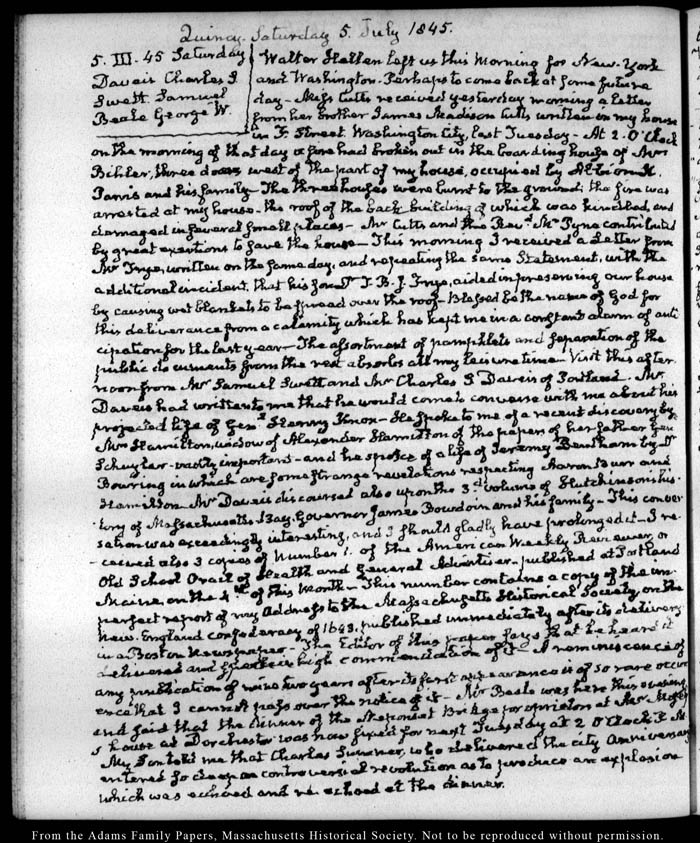 Quincy. Saturday 5. July 1845.
5. III. 45 Saturday
Daveis Charles S
Swett Samuel
Beale George W.
Walter Hellen left us this Morning for New-York
and Washington. Perhaps to come back at some future
day - Miss Cutts received yesterday morning a letter
from her brother James Madison Cutts, written in my house
in F. Street Washington City, last Tuesday - At 2. O'Clock
on the morning of that day a fire had broken out in the boarding house of Mrs
three doors west of the part of my house, occupied by Albion K.
Parris and his family - The three houses were burnt to the ground; the fire was
arrested at my house - the roof of the back building of which was kindled, and
damaged in several small places - Mr Cutts and the Revd. Mr Pyne contributed
by great exertions to save the house - This morning I received a Letter from
Mr Frye, written on the same day, and repeating the same Statement, with the
additional incident, that his son T. B. J. Frye, aided in preserving our house
by causing wet blankets to be spread over the roof - Blessed be the name of God for
this deliverance from a calamity which has kept me in a constant alarm of anti
cipation for the last year - The assortment of pamphlets and separation of the
public documents from the rest absorbs all my leisure time - Visit this after.
noon from Mr Samuel Swett and Mr Charles S Daveis of Portland. Mr
Daveis had written to me that he would come to converse with me about his
projected life of Genl. Henry Knox - He spoke to me of a recent discovery by
Mrs Hamilton, widow of Alexander Hamilton of the papers of her father Genl
Schuyler - vastly important - and he spoke of a life of Jeremy Bentham by Dr
Bowring in which are some strange revelations respecting Aaron Burr and
Hamilton. Mr Daveis discoursed also upon the 3d. volume of Hutchinson's his-
tory of Massachusetts Bay, Governor James Bowdoin and his family - This conver
sation was exceedingly interesting, and I should gladly have prolonged it - I re
ceived also 3 copies of Number 1. of the American Weekly Reviewer, or
Old School Oracle of Health and General Advertiser - published at Portland
Maine, on the 4th of this Month - This number contains a copy of the im.
perfect report of my Address to the Massachusetts Historical Society, on the
New. England confederacy of 1643. published immediately after its delivery
in a Boston Newspaper - The Editor of this paper says that he heard it
delivered and speaks in high commendation of it - A reminiscence of
any publication of mine two years after its first appearance is of so rare occur
ence that I cannot pass over the notice of it - Mr Beale was here this evening
and said that the dinner of the Neponset Bridge proprietors at Mr
s house at Dorchester was now fixed for next Tuesday at 2 O'Clock P. M.
My Son told me that Charles Sumner, who delivered the city Anniversary
entered so deep on controversial revolution as to produce an explosion
which was echoed and re echoed at the dinner.
From the Adams Family Papers, Massachusetts Historical Society. Not to be reproduced without permission.